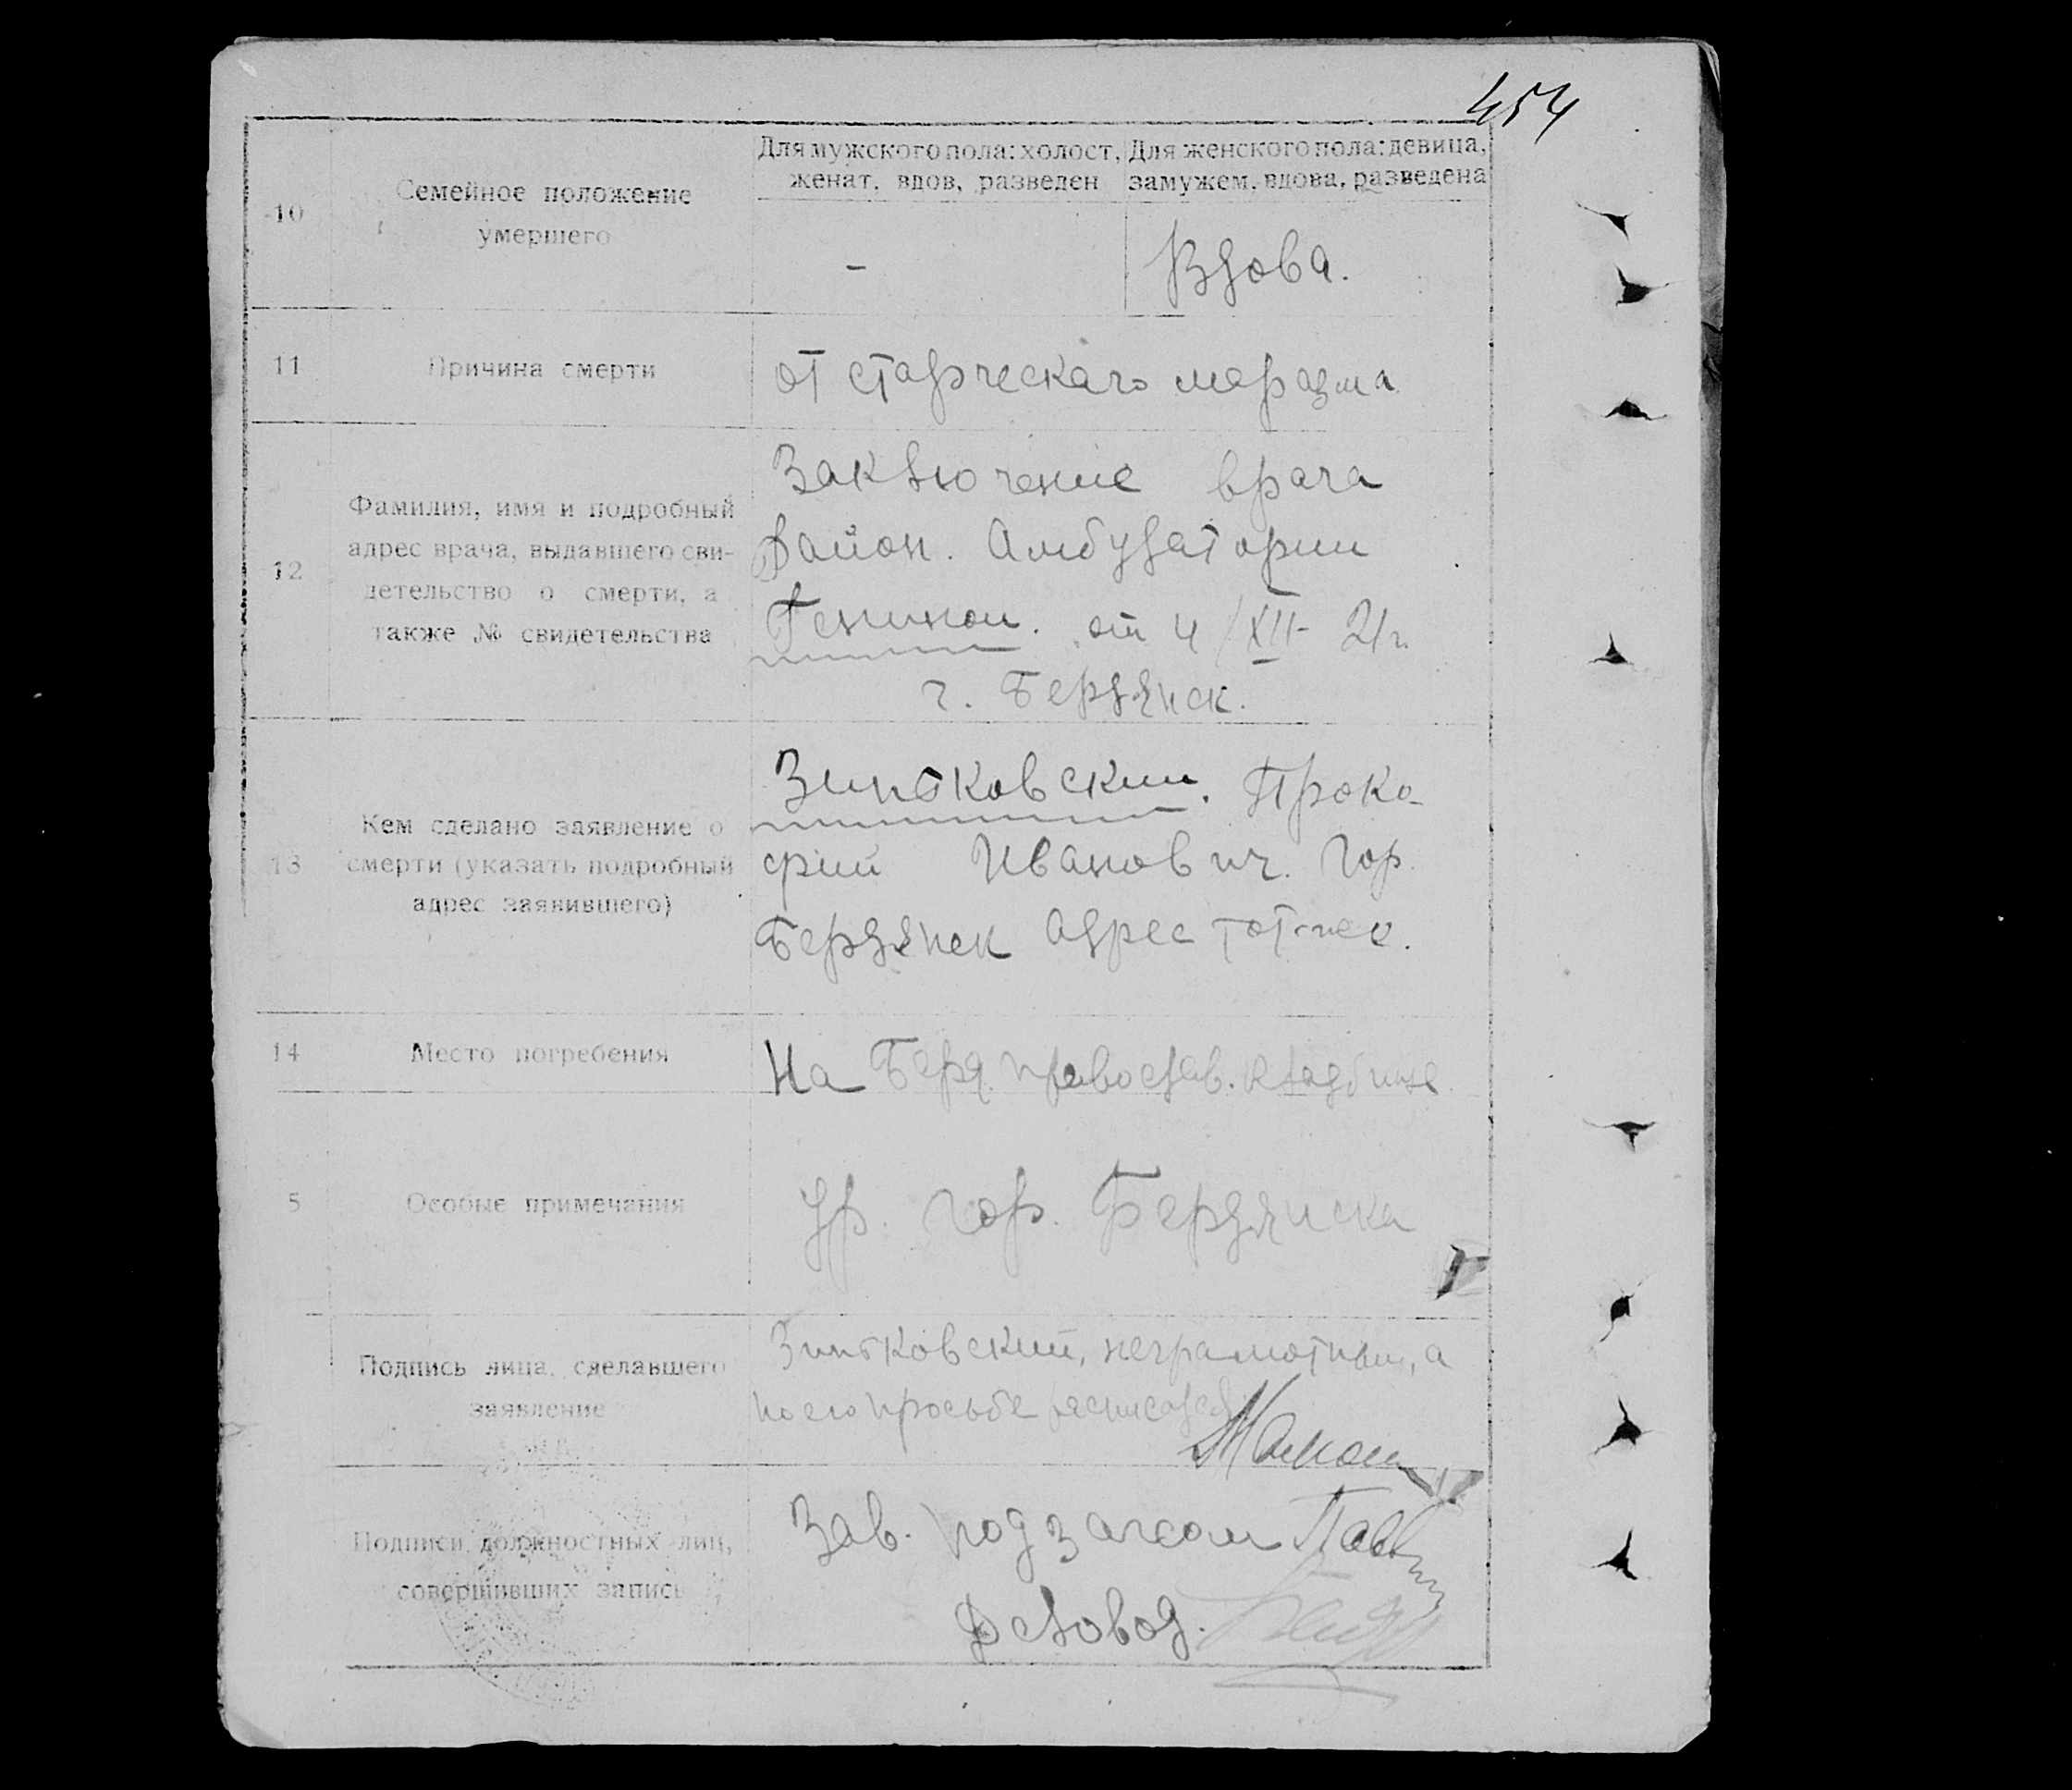 454
Для мужского пола: холост, женат, вдов, разведен
Для женского пола: девица, замужем, вдова, разведена
10
Семейное положение
умершего
-
Вдова.
11
Причина смерти
от старческаго маразма
12
Фамилия, имя и подробный
адрес врача, выдавшего сви-
детельство о смерти, а
также № свидетельства
Заключение врача
Район. Амбулатории
от 4/XII- 21 г.
г. Бердянск.
13
Кем сделано заявление о
смерти (указать подробный
адрес заявившего)
Зинтковский. Проко-
фий Иванович. Гор.
Бердянск Адрес тот-же.
14
Место погребения
На Берд. православ. кладбище.
5
Особые примечания
Ур. Гор. Бердянска
Подпись лица, сделавшего
заявление
Зинтковский, неграмотный, а
по его просьбе расписался
Подписи должностных лиц,
совершивших запись
Зав. подзагсом
Деловод.